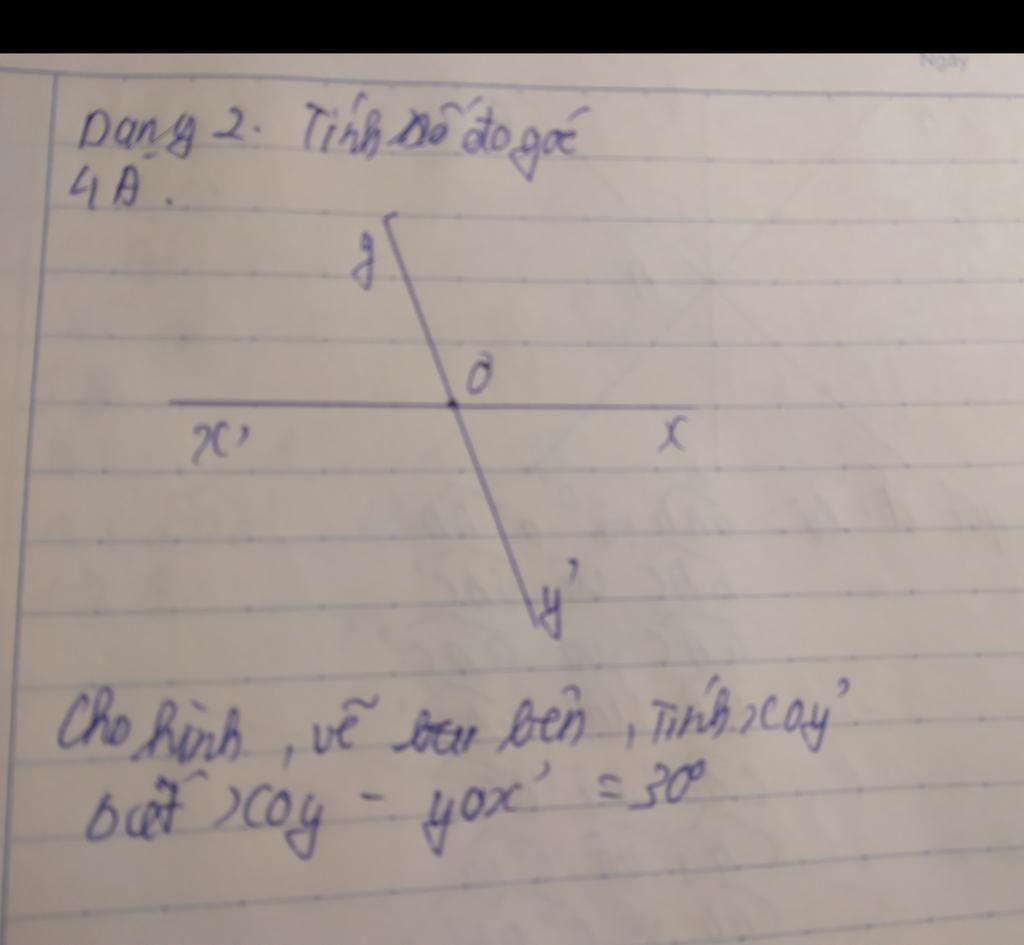 Ngày
Dạng 2. Tính số đo góc
4A.
y
O
x'
x
y'
Cho hình, vẽ bên, Tính xOy'
biết xOy - yOx' = 30°